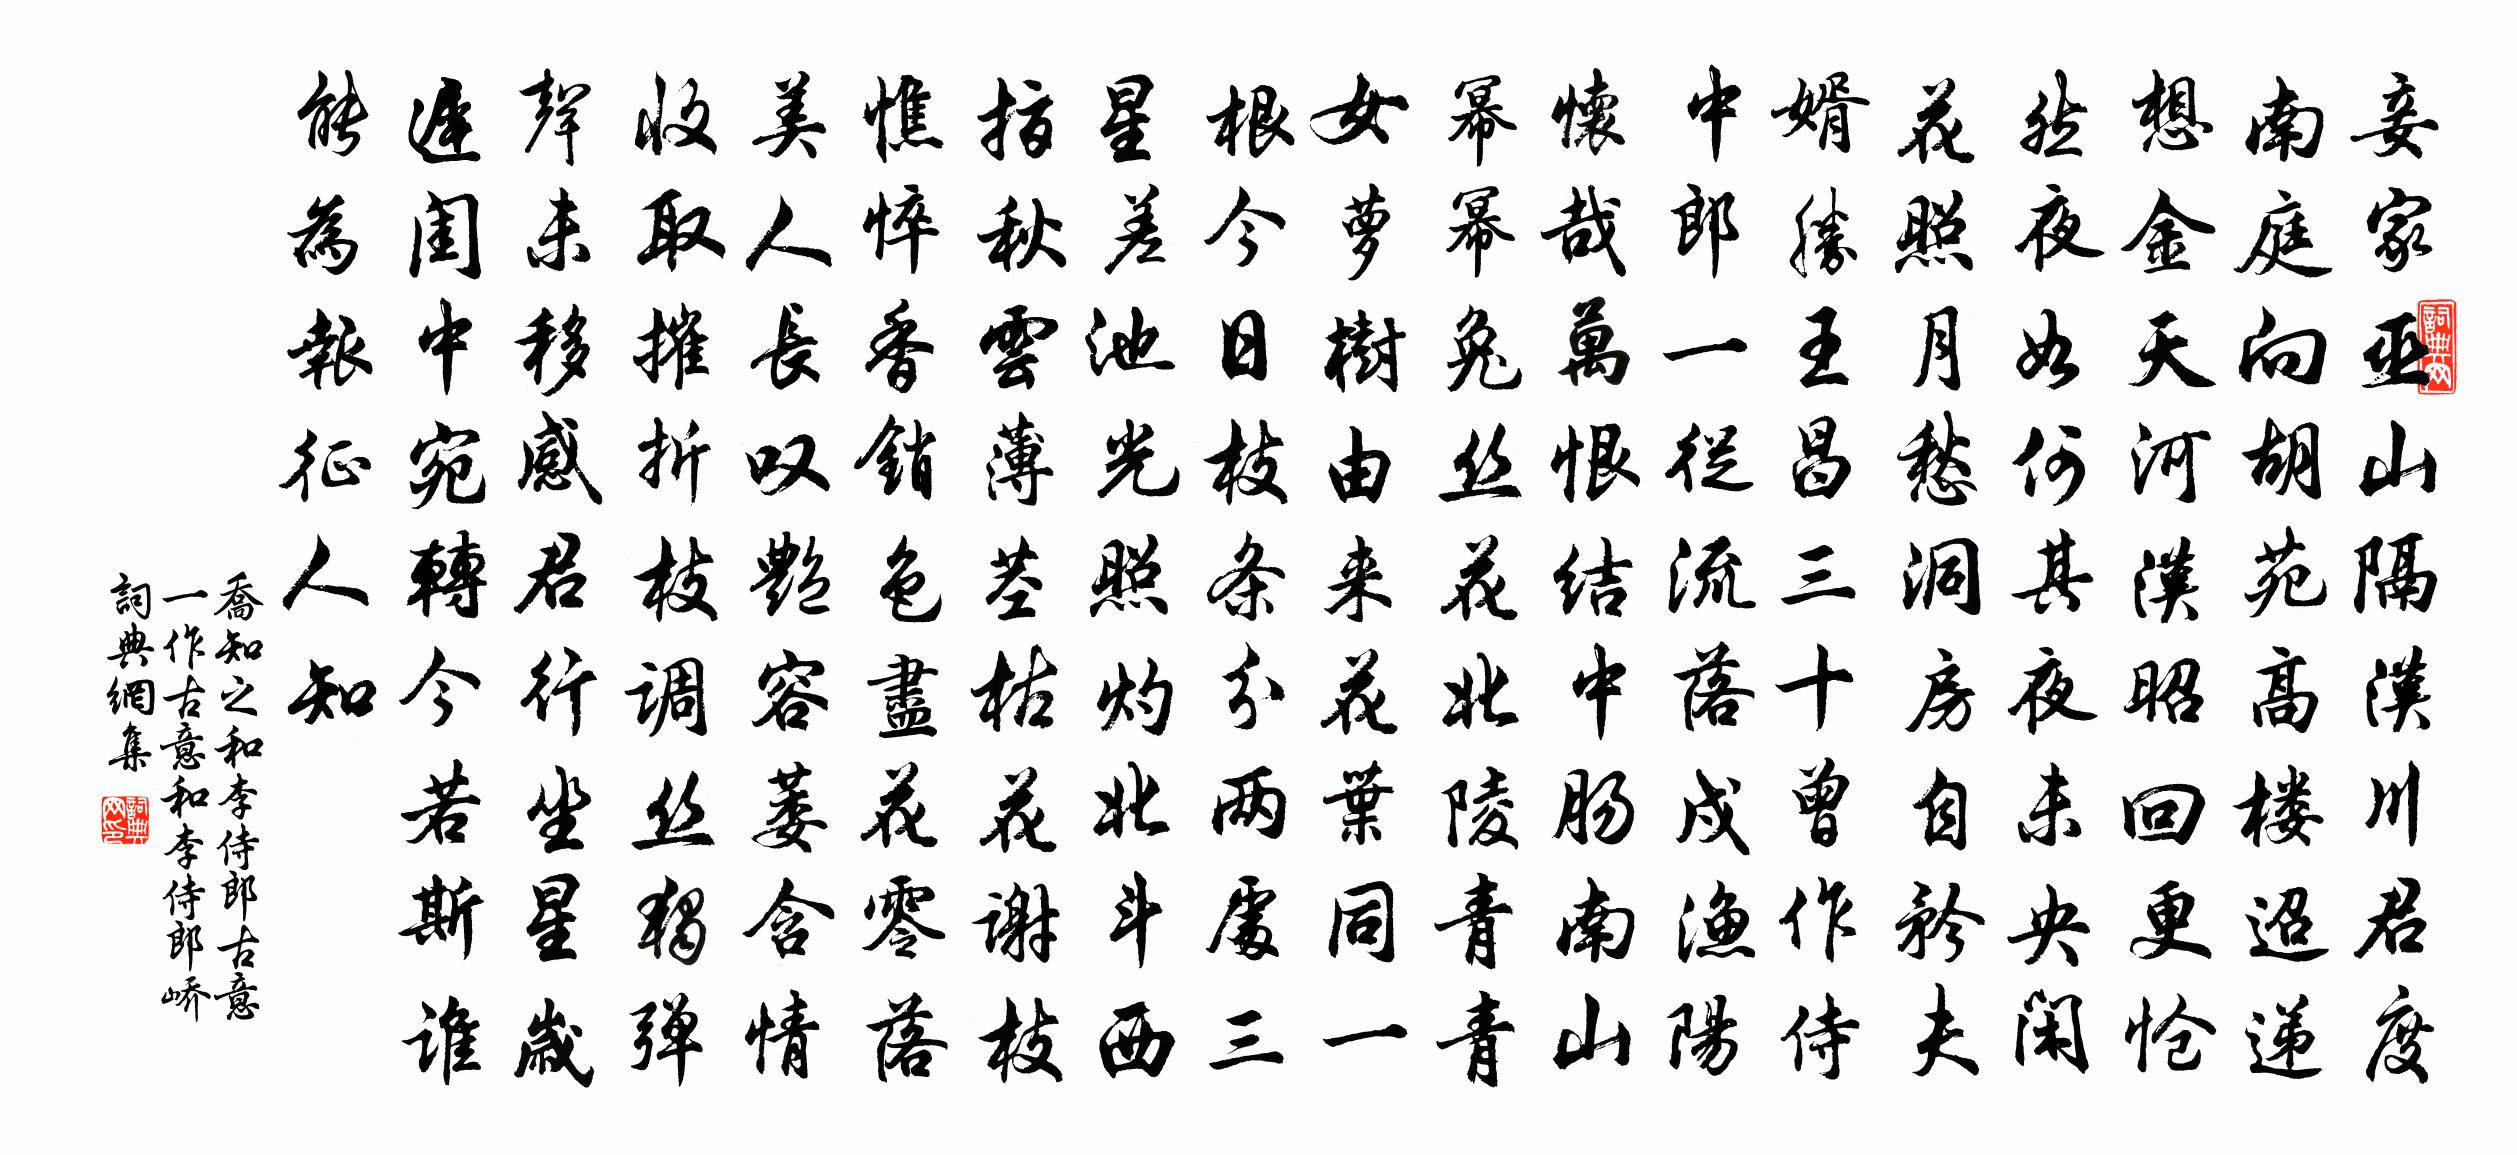 妾家巫山隔漢川君度
南庭向胡苑高楼迢递
想金天河漢昭回更怆
然夜如何其夜未央闲
花照月愁洞房自矜夫
婿勝王昌三十曾作侍
中郎一從流落戍漁陽
懷哉萬恨结中肠南山
幂幂兔丝花北陵青青
女萝樹由来花葉同一
根今日枝条分两處三
星差池光照灼北斗西
指秋雲薄茎枯花谢枝
憔悴香銷色盡花零落
美人長叹艷容萎含情
收取摧折枝调丝独弹
聲未移感君行坐星歲
遲闺中宛轉今若斯誰
能為報征人知
喬知之和李侍郎古意
一作古意和李侍郎嶠
詞典網集
詞典网
詞典网印